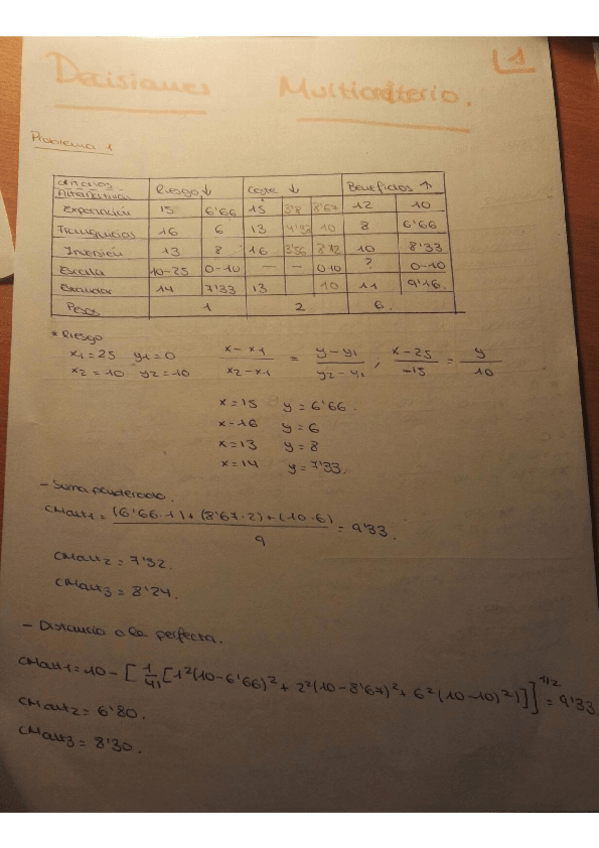 1
Decisiones Multicriterio.
Problema 1
Criterios
Alternativas Riesgo ↓ Coste ↓ Beneficios ↑
Exportación 15 6'66 15 3'8 8'67 12 10
Franquicias 16 6 13 4'33 10 8 6'66
Inversión 13 8 16 3'56 8'12 10 8'33
Escala 10-25 0-10 — — 0-10 ? 0-10
Evaluador 14 7'33 13 10 11 9'16.
Pesos 1 2 6.
* Riesgo
x1 = 25 y1 = 0 x - x1 / x2 - x1 = y - y1 / y2 - y1 ; x - 25 / -15 = y / 10
x2 = 10 y2 = 10
x = 15 y = 6'66.
x = 16 y = 6
x = 13 y = 8
x = 14 y = 7'33.
- Suma ponderada.
CMalt1 = (6'66·1) + (8'67·2) + (10·6) / 9 = 9'33.
CMalt2 = 7'32.
CMalt3 = 8'24.
- Distancia a la perfecta.
CMalt1 = 10 - [1/41 [1²(10-6'66)² + 2²(10-8'67)² + 6²(10-10)²)]]^1/2 = 9'33.
CMalt2 = 6'80.
CMalt3 = 8'30.